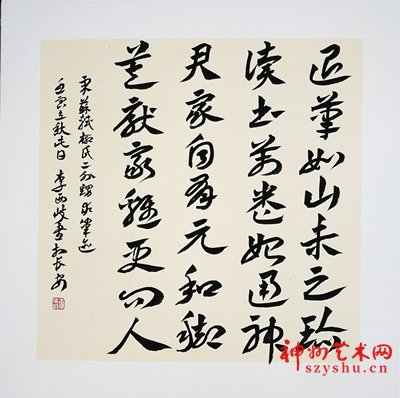 退筆如山未足珍
读书萬卷始通神
君家自有元和脚
莫厭家雞更问人
宋蘇軾柳氏二外甥求筆迹
壬寅立秋吉日 李西岐書於长安
神州艺术网
szyshu.cn